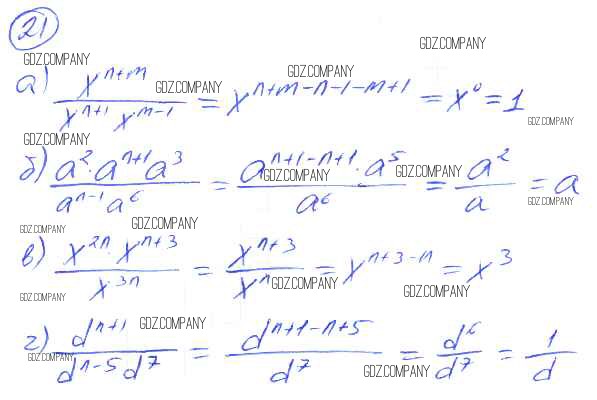 21
GDZ.COMPANY
GDZ.COMPANY
а) x^{n+m} / (x^{n+1} x^{m-1}) = x^{n+m-n-1-m+1} = x^0 = 1
GDZ.COMPANY
GDZ.COMPANY
GDZ.COMPANY
GDZ.COMPANY
б) (a^2 · a^{n+1} a^3) / (a^{n-1} a^6) = (a^{n+1-n+1} · a^5) / a^6 = a^2 / a = a
GDZ.COMPANY
GDZ.COMPANY
GDZ.COMPANY
GDZ.COMPANY
GDZ.COMPANY
в) (x^{2n} · x^{n+3}) / x^{3n} = x^{n+3} / x^n = x^{n+3-n} = x^3
GDZ.COMPANY
GDZ.COMPANY
GDZ.COMPANY
GDZ.COMPANY
г) d^{n+1} / (d^{n-5} d^7) = d^{n+1-n+5} / d^7 = d^6 / d^7 = 1 / d
GDZ.COMPANY
GDZ.COMPANY